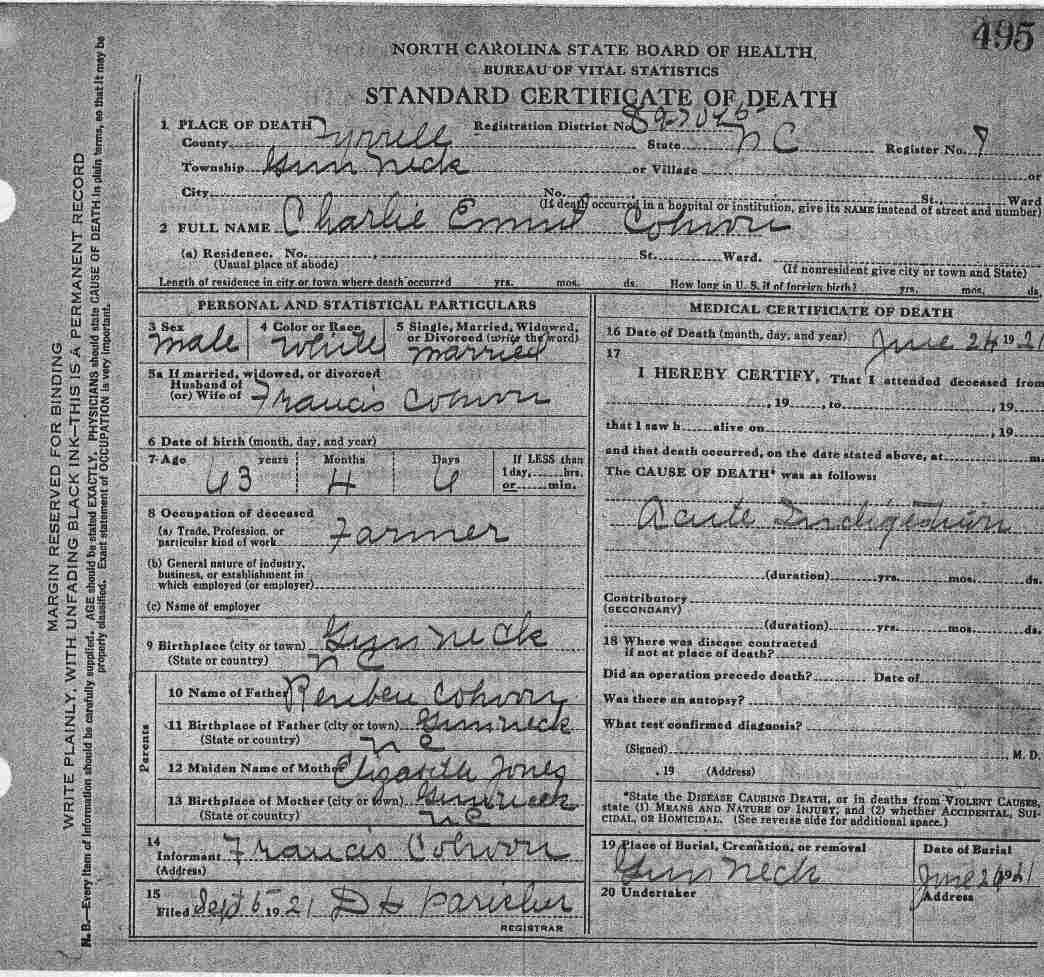 495
NORTH CAROLINA STATE BOARD OF HEALTH
BUREAU OF VITAL STATISTICS
STANDARD CERTIFICATE OF DEATH
1 PLACE OF DEATH Registration District No.
County Tyrrell State N C Register No. 9
Township Gum Neck or Village or
City No. St., Ward
(If death occurred in a hospital or institution, give its NAME instead of street and number)
2 FULL NAME Charlie Cohoon
(a) Residence. No. , St. Ward.
(Usual place of abode) (If nonresident give city or town and State)
Length of residence in city or town where death occurred yrs. mos. ds. How long in U. S. if of foreign birth? yrs. mos. ds.
PERSONAL AND STATISTICAL PARTICULARS
3 Sex 4 Color or Race 5 Single, Married, Widowed,
or Divorced (write the word)
male White married
5a If married, widowed, or divorced
Husband of
(or) Wife of Francis Cohoon
6 Date of birth (month, day, and year)
7 Age years Months Days If LESS than
1 day, hrs.
63 4 6 or min.
8 Occupation of deceased
(a) Trade, Profession, or
particular kind of work Farmer
(b) General nature of industry,
business, or establishment in
which employed (or employer)
(c) Name of employer
9 Birthplace (city or town) Gum Neck
(State or country) N C
Parents
10 Name of Father Reuben Cohoon
11 Birthplace of Father (city or town) Gum neck
(State or country) N C
12 Maiden Name of Mother Elizabeth Jones
13 Birthplace of Mother (city or town) Gum neck
(State or country) N C
14
Informant Francis Cohoon
(Address)
15
Filed Sept 5 1921
REGISTRAR
MEDICAL CERTIFICATE OF DEATH
16 Date of Death (month, day, and year) June 24 1921
17
I HEREBY CERTIFY, That I attended deceased from
, 19 , to , 19
that I saw h alive on , 19
and that death occurred, on the date stated above, at m.
The CAUSE OF DEATH* was as follows:
Acute Indigestion
(duration) yrs. mos. ds.
Contributory
(SECONDARY)
(duration) yrs. mos. ds.
18 Where was disease contracted
if not at place of death?
Did an operation precede death? Date of
Was there an autopsy?
What test confirmed diagnosis?
(Signed) M. D.
, 19 (Address)
*State the DISEASE CAUSING DEATH, or in deaths from VIOLENT CAUSES,
state (1) MEANS AND NATURE OF INJURY, and (2) whether ACCIDENTAL, SUI-
CIDAL, OR HOMICIDAL. (See reverse side for additional space.)
19 Place of Burial, Cremation, or removal Date of Burial
Gum Neck June 1921
20 Undertaker Address
MARGIN RESERVED FOR BINDING
WRITE PLAINLY, WITH UNFADING BLACK INK—THIS IS A PERMANENT RECORD
N. B.—Every item of information should be carefully supplied. AGE should be stated EXACTLY. PHYSICIANS should state CAUSE OF DEATH in plain terms, so that it may be
properly classified. Exact statement of OCCUPATION is very important.